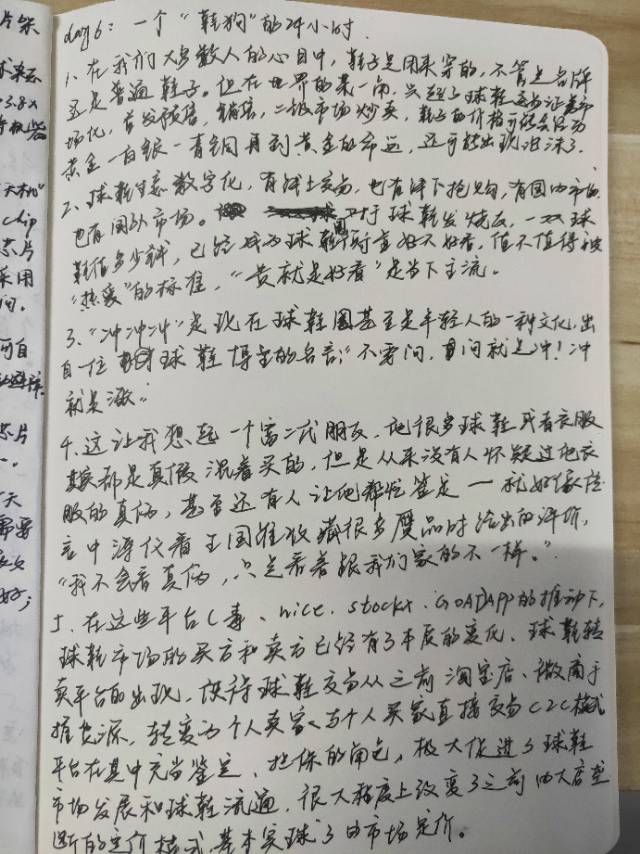 片架
day 6：一个“鞋狗”的24小时.
1. 在我们大多数人的心目中，鞋子是用来穿的，不管是名牌
还是普通鞋子。但在世界的某一角，
场化，首发预售，销售，二级市场炒卖，鞋子的价格可能会经历
黄金一白银一青铜再到黄金的命运，还可能出现泡沫了.
2. 球鞋生意数字化，有线上交易，也有线下抢购，有国内市场
也有国外市场。对于球鞋发烧友，一双球
鞋值多少钱，已经成为球鞋圈衡量好不好看，值不值得被
“热爱”的标准，“贵就是好看”是当下主流。
3. “冲冲冲”是现在球鞋圈甚至是年轻人的一种文化，出
自一位球鞋博主的名言；“不要问，问就是冲！冲
就是涨”
4. 这让我想起一个富二代朋友，他很多球鞋或者衣服
其实都是真假混着买的，但是从来没有人怀疑过他衣
服的真伪，甚至还有人让他帮忙鉴定一就好像
中溥仪看王国维收藏很多赝品时给出的评价，
“我不会看真伪，只是看着跟我们家的不一样。”
5. 在这些平台（毒、nice、stockx、GOAT）APP的推动下，
球鞋市场的买方和卖方已经有了本质的变化，球鞋转
卖平台的出现，使得球鞋交易从之前淘宝店、微商于
推货源，转变为个人卖家与个人买家直接交易C2C模式
平台在其中充当鉴定、担保的角色，极大促进了球鞋
市场发展和球鞋流通，很大程度上改变了之前由大店垄
断的定价模式，基本实现了由市场定价。
3.8x
“天机”
chip
芯片
采用
问.
可自
芯片
天
需要
好；